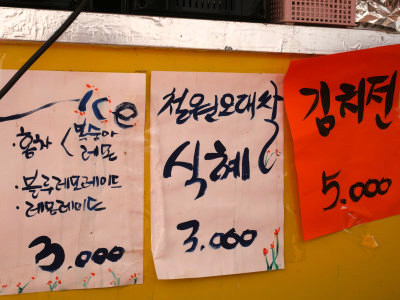 ice
·홍차 < 복숭아
레몬
·블루레몬레이드
·레몬레이드
3.000
철원오대쌀
식혜
3.000
김치전
5.000